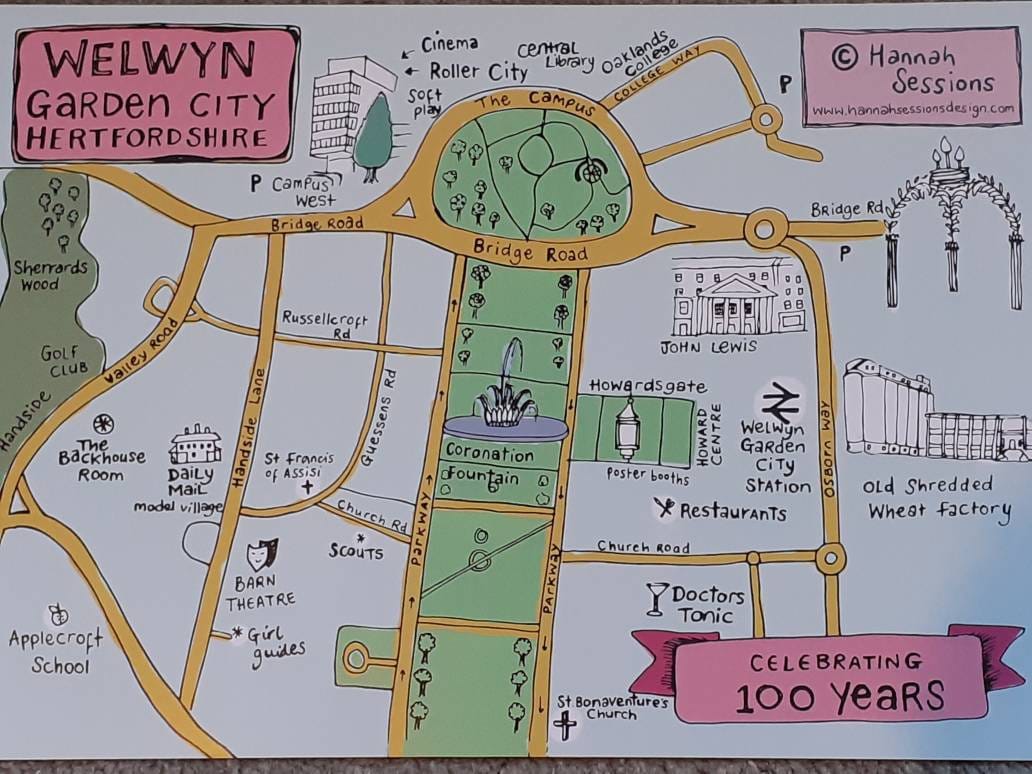 WELWYN
GARDEN CITY
HERTFORDSHIRE
Cinema
Roller City
Soft
play
Central
Library
Oaklands
College
COLLEGE WAY
The Campus
P
© Hannah
Sessions
www.hannahsessionsdesign.com
P Campus
West
Bridge Road
Bridge Road
Bridge Rd
P
Sherrards
Wood
GOLF
CLUB
Handside
Valley Road
Russellcroft
Rd
Handside Lane
Guessens Rd
JOHN LEWIS
Howardsgate
HOWARD
CENTRE
Poster booths
Welwyn
GARDEN
CITY
STATION
OSBORN WAY
Old Shredded
Wheat factory
The
Backhouse
Room
DAILY
MAIL
model village
St Francis
of ASSISI
Church Rd
Scouts
Coronation
Fountain
PARKWAY
PARKWAY
Restaurants
Church Road
BARN
THEATRE
Girl
guides
Applecroft
School
Doctors
Tonic
St Bonaventure's
Church
CELEBRATING
100 Years